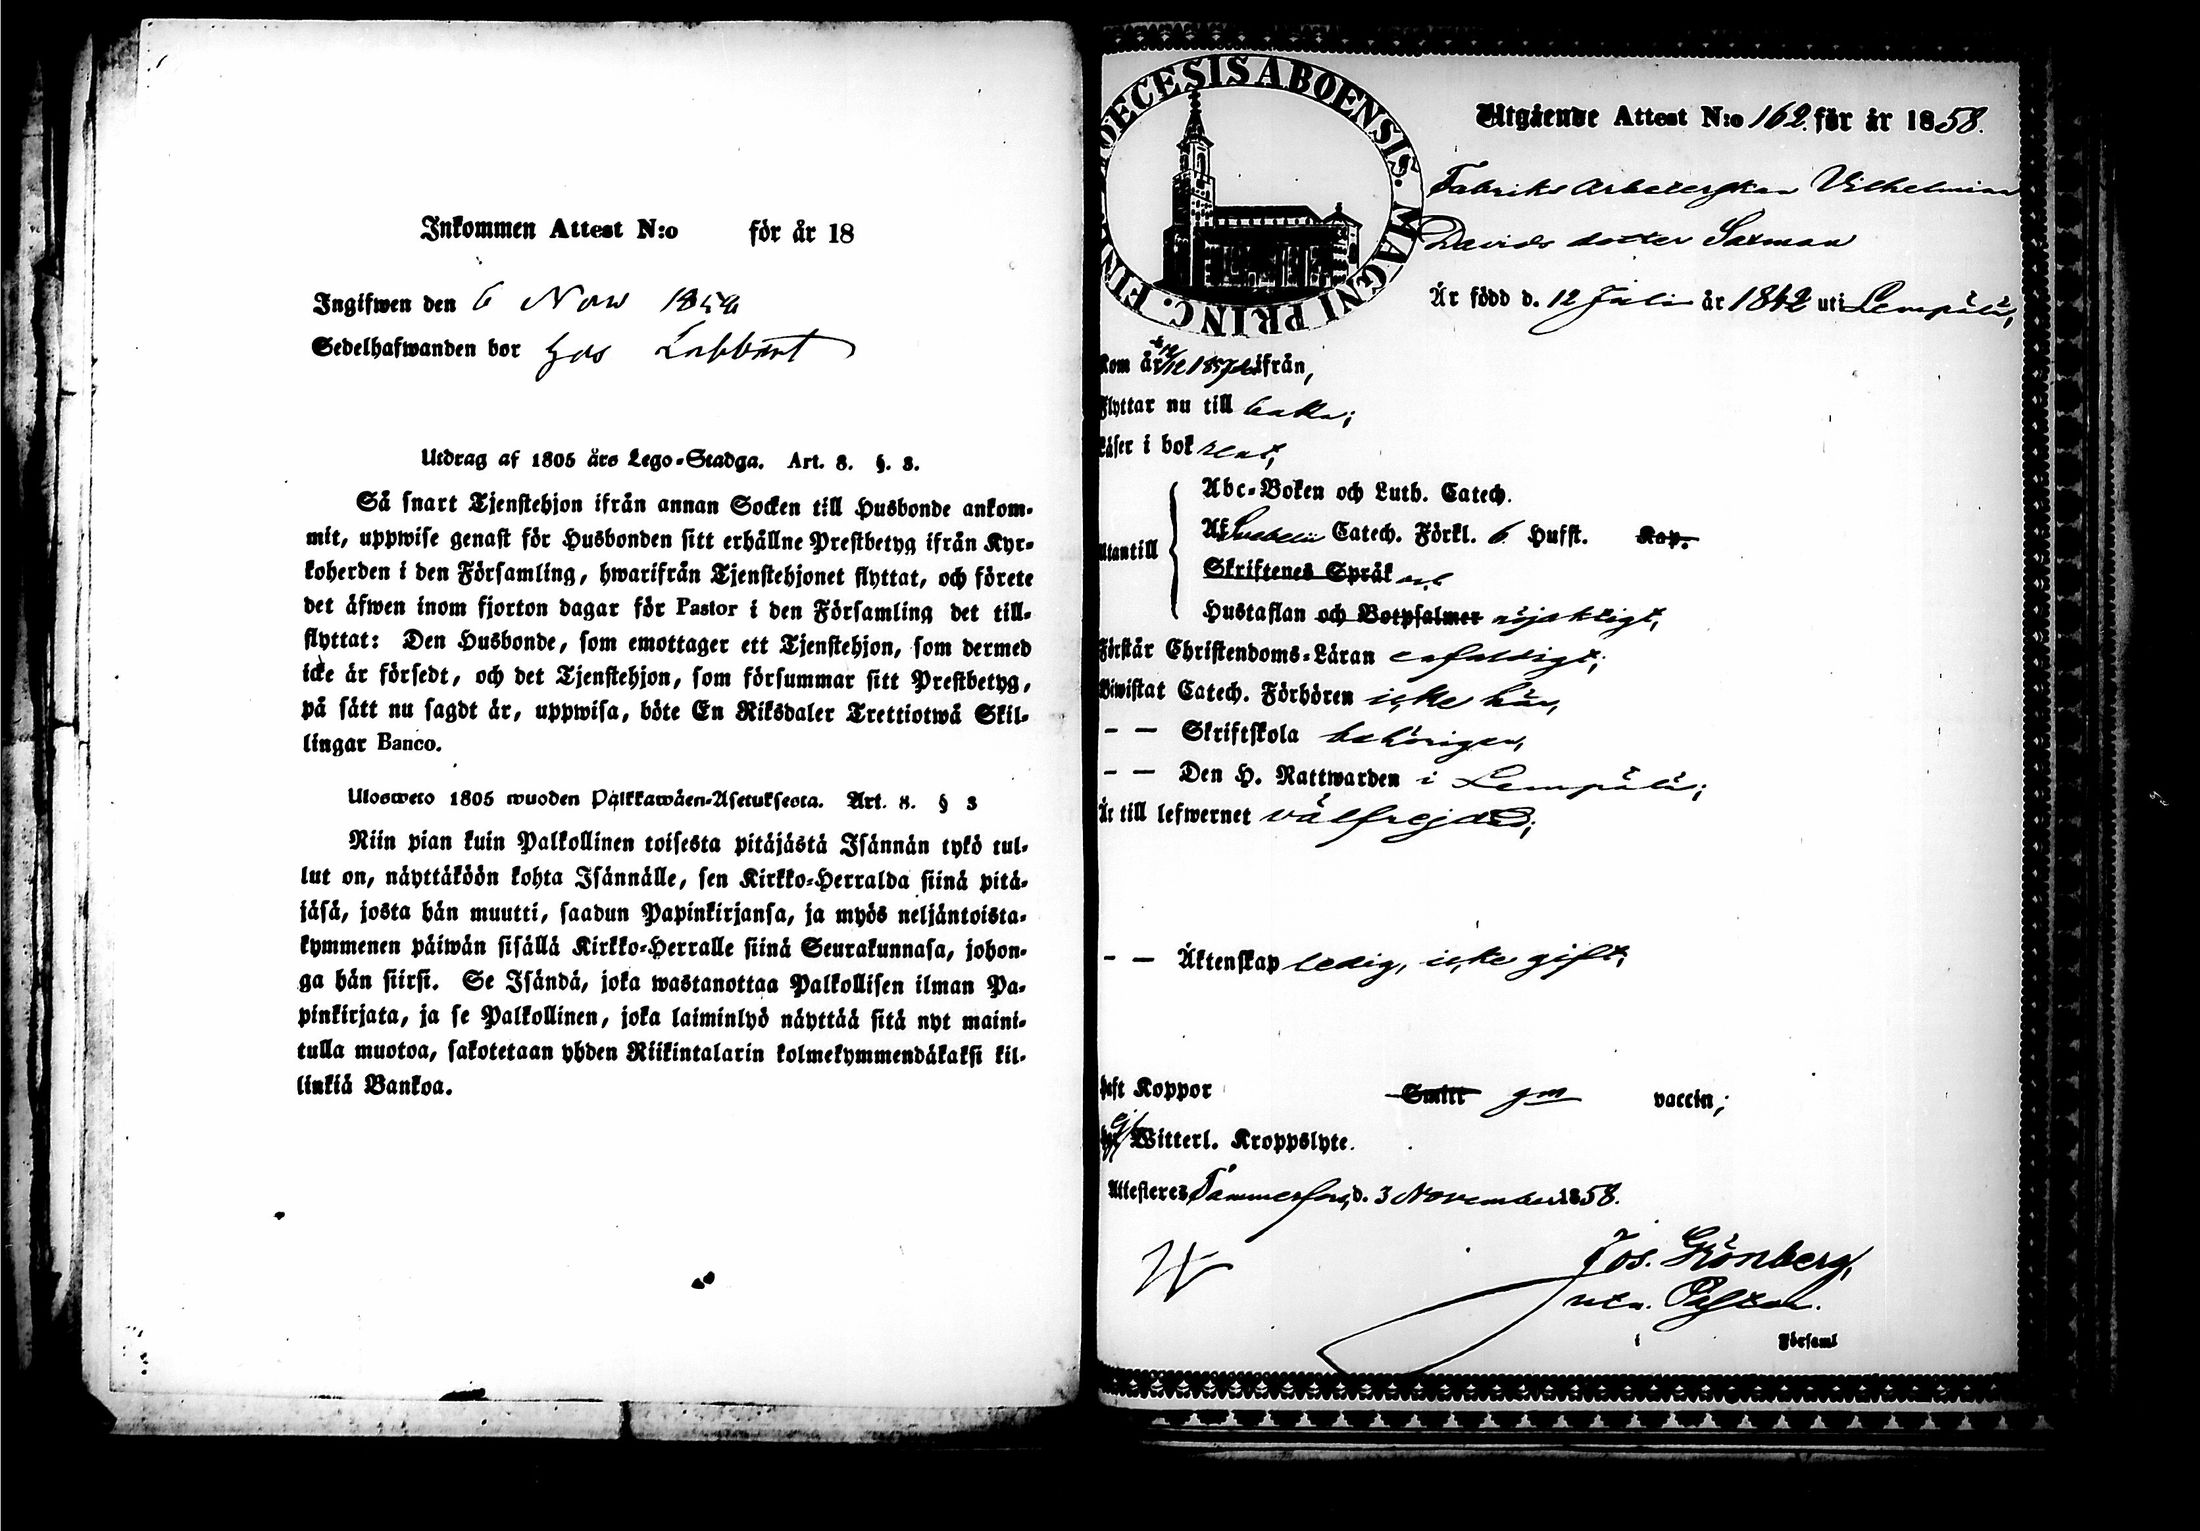 Inkommen Attest N:o för år 18
Ingifwen den 6 Nov 185
Sedelhafwanden bor hos
Utdrag af 1805 års Lego-Stadga. Art. 8. §. 3.
Så snart Tjenstehjon ifrån annan Socken till Husbonde ankom-
mit, uppwise genast för Husbonden sitt erhållne Prestbetyg ifrån Kyr-
koherden i den Församling, hwarifrån Tjenstehjonet flyttat, och förete
det äfwen inom fjorton dagar för Pastor i den Församling det till-
flyttat: Den Husbonde, som emottager ett Tjenstehjon, som dermed
icke är försedt, och det Tjenstehjon, som försummar sitt Prestbetyg,
på sätt nu sagdt är, uppwisa, böte En Riksdaler Trettiotwå Skil-
lingar Banco.
Ulosweto 1805 wuoden Palkkawäen-Asetuksesta. Art. 8. § 3
Niin pian kuin Palkollinen toisesta pitäjästä Isännän tykö tul-
lut on, näyttäköön kohta Isännälle, sen Kirkko-Herralda siinä pitä-
jäsä, josta hän muutti, saadun Papinkirjansa, ja myös neljäntoista-
kymmenen päiwän sisällä Kirkko-Herralle siinä Seurakunnasa, johon-
ga hän siirsi. Se Isändä, joka wastanottaa Palkollisen ilman Pa-
pinkirjata, ja se Palkollinen, joka laiminlyö näyttää sitä nyt maini-
tulla muotoa, sakotetaan yhden Riikintalarin kolmekymmendäkaksi kil-
linkiä Bankoa.
DECESIS ABOENSIS. MAGNI PRINC. FIN
Utgående Attest N:o 162. för år 1858.
Fabriks Arbeterskan Vilhelmina
Davids dotter Saxman
Är född d. 12 Juli år 1842 uti Lempälä,
Kom år 1857 ifrån,
Flyttar nu till baka;
Läser i bok rent,
Abc-Boken och Luth. Catech.
Utantill
Af Svebelii Catech. Förkl. 6 Hufst. Kap.
Skriftenes Språk och
Hustaflan och Botpsalmer nöjaktigt,
Förstår Christendoms-Läran enfaldigt;
Biwistat Catech. Förhören icke här,
— — Skriftskola behörigen,
— — Den H. Nattwarden i Lempälä;
Är till lefwernet välfrejdad;
— — Äktenskap ledig, icke gift;
Haft Koppor Smitt gm vaccin;
Witterl. Kroppslyte.
Attesteres Tammerfors, d. 3 November 1858.
Jos. Grönberg,
Pastor.
i Församl